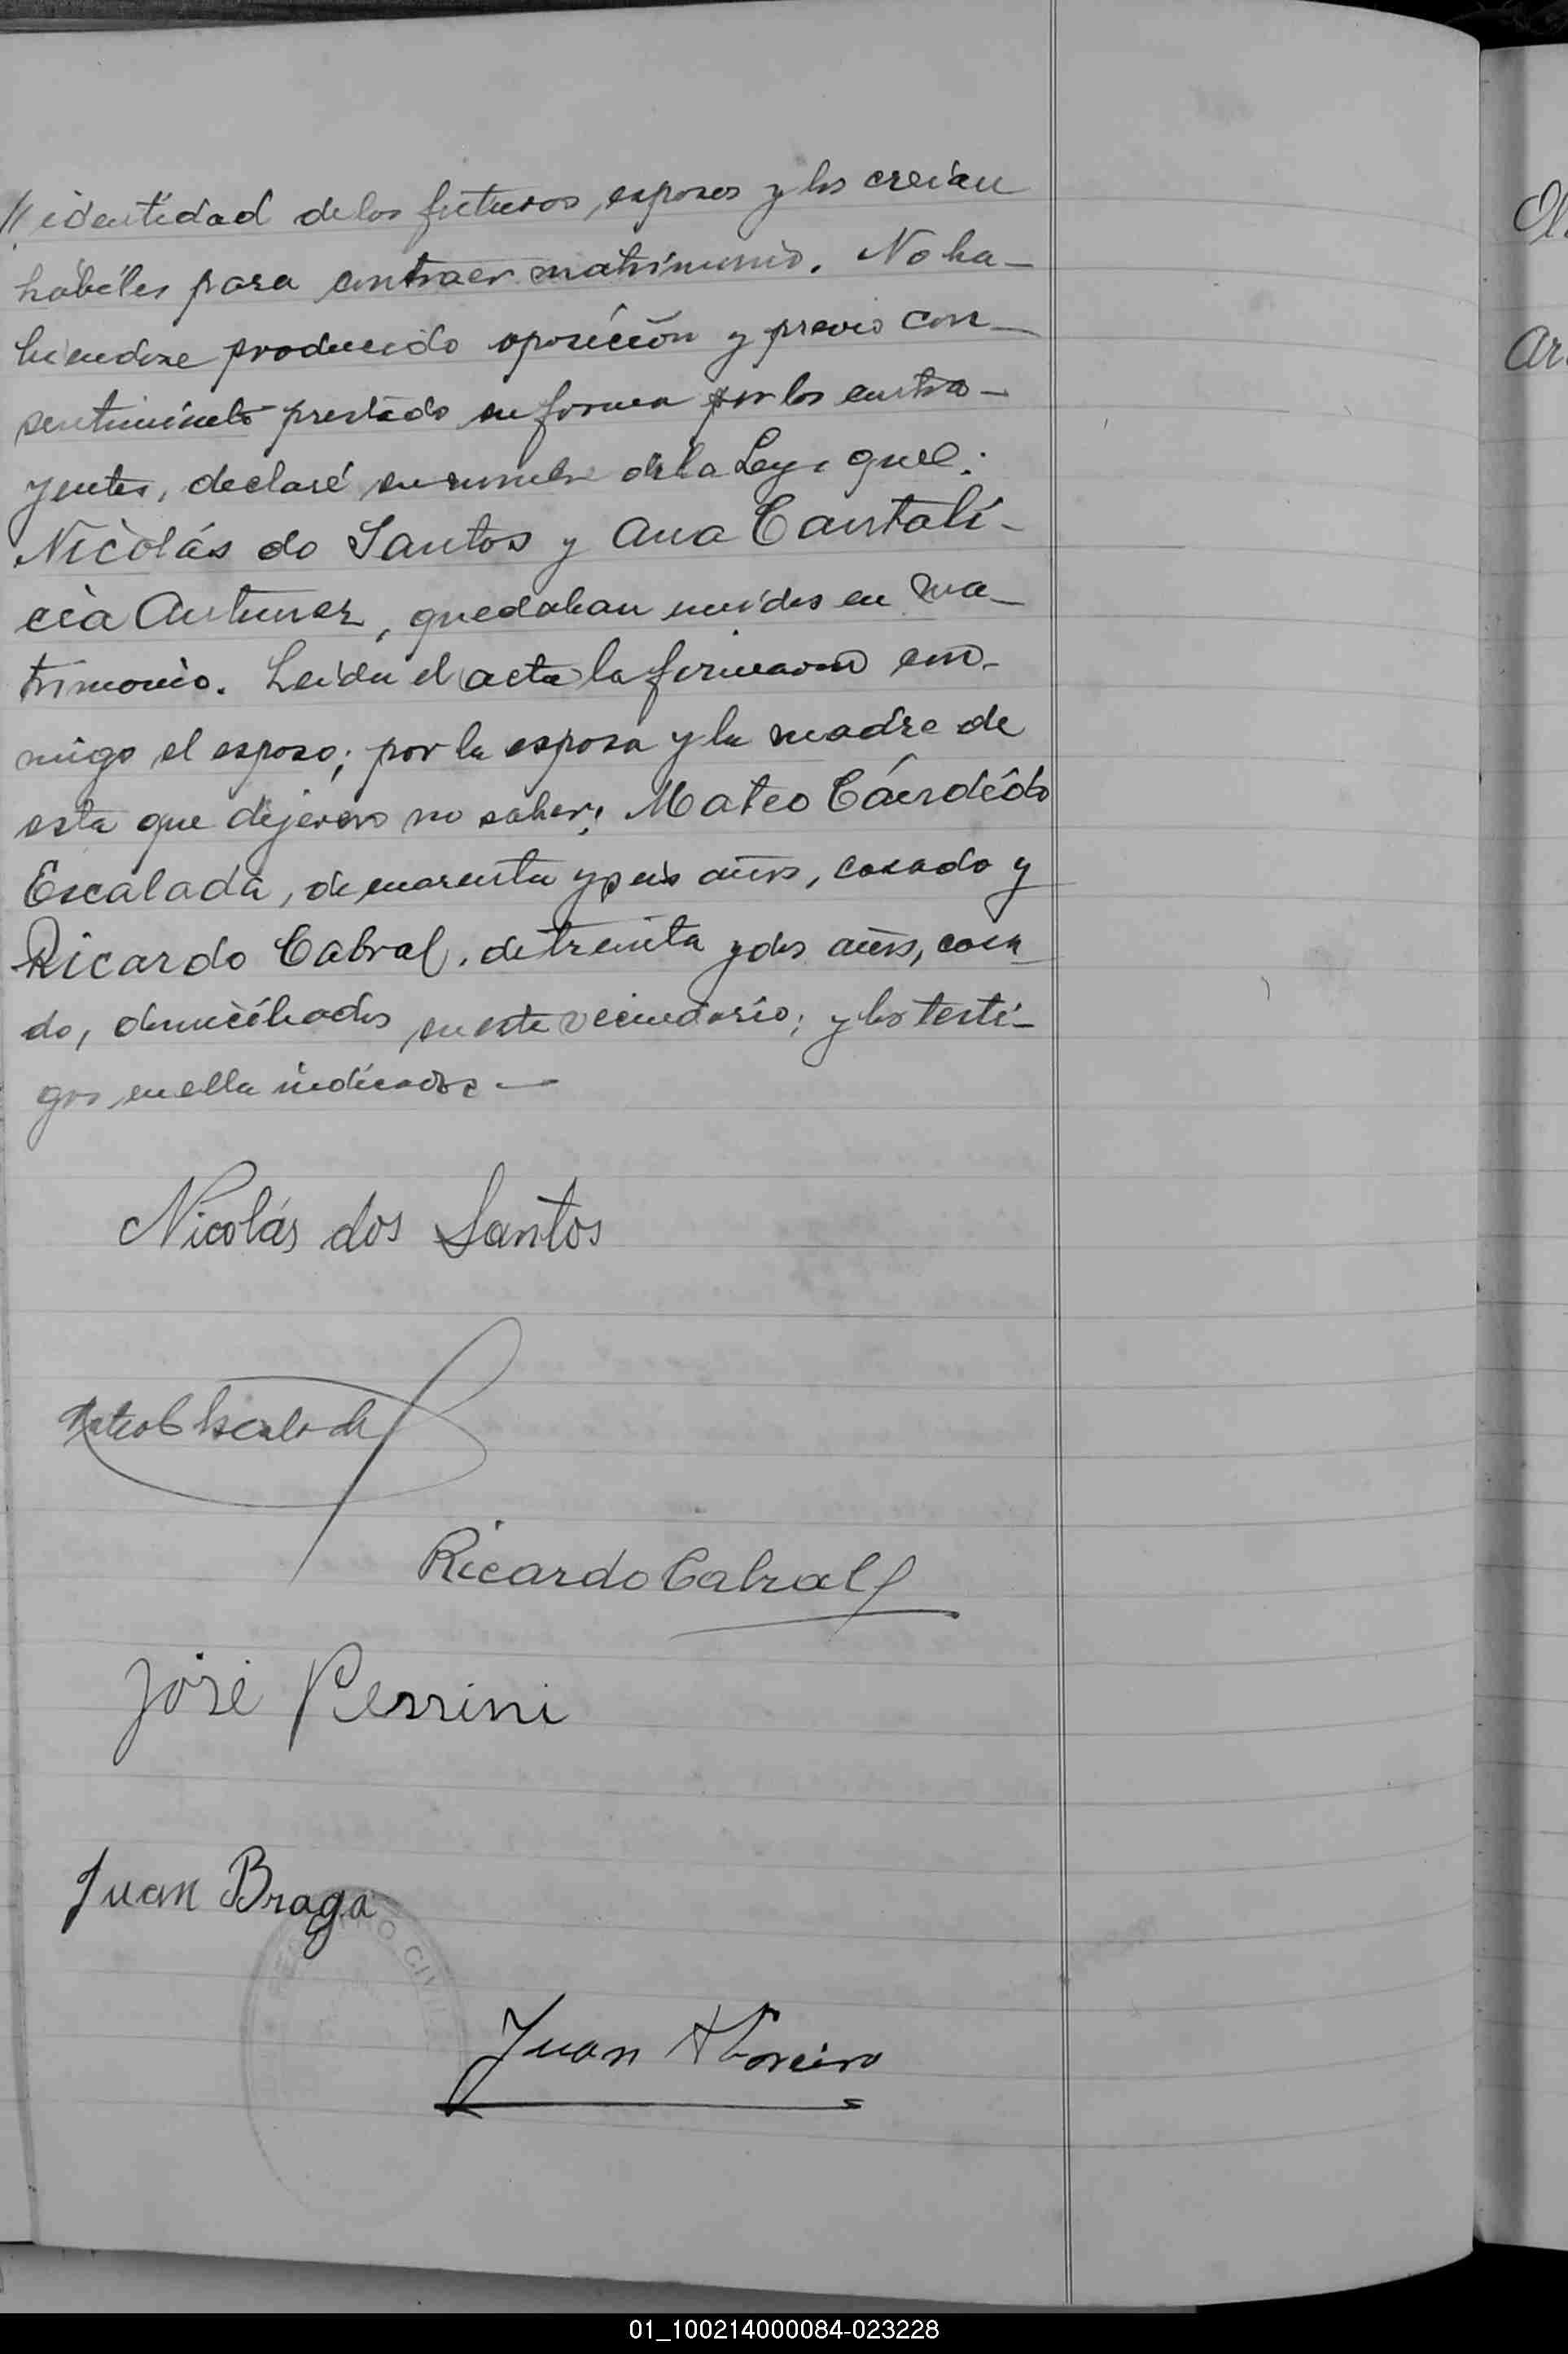 // identidad de los futuros esposos y los creían
hábiles para contraer matrimonio. No ha-
biendose producido oposición y previo con-
sentimiento prestado en forma por los contra-
yentes, declaré en nombre de la Ley, que:
Nicolás do Santos y Ana Cantali-
cia Antunez, quedaban unidos en ma-
trimonio. Leida el acta la firmaron con-
migo el esposo; por la esposa y la madre de
esta que dijeron no saber; Mateo Cándido
Escalada, de cuarenta y seis años, casado y
Ricardo Cabral, de treinta y dos años, casa
do, domiciliados en este vecindario; y los testi-
gos en ella indicados.—
Nicolás dos Santos
Mateo C Escalada
Ricardo Cabral
José Perrini
Juan Braga
REGISTRO CIVIL
Juan
Ol
Ar
01_100214000084-023228